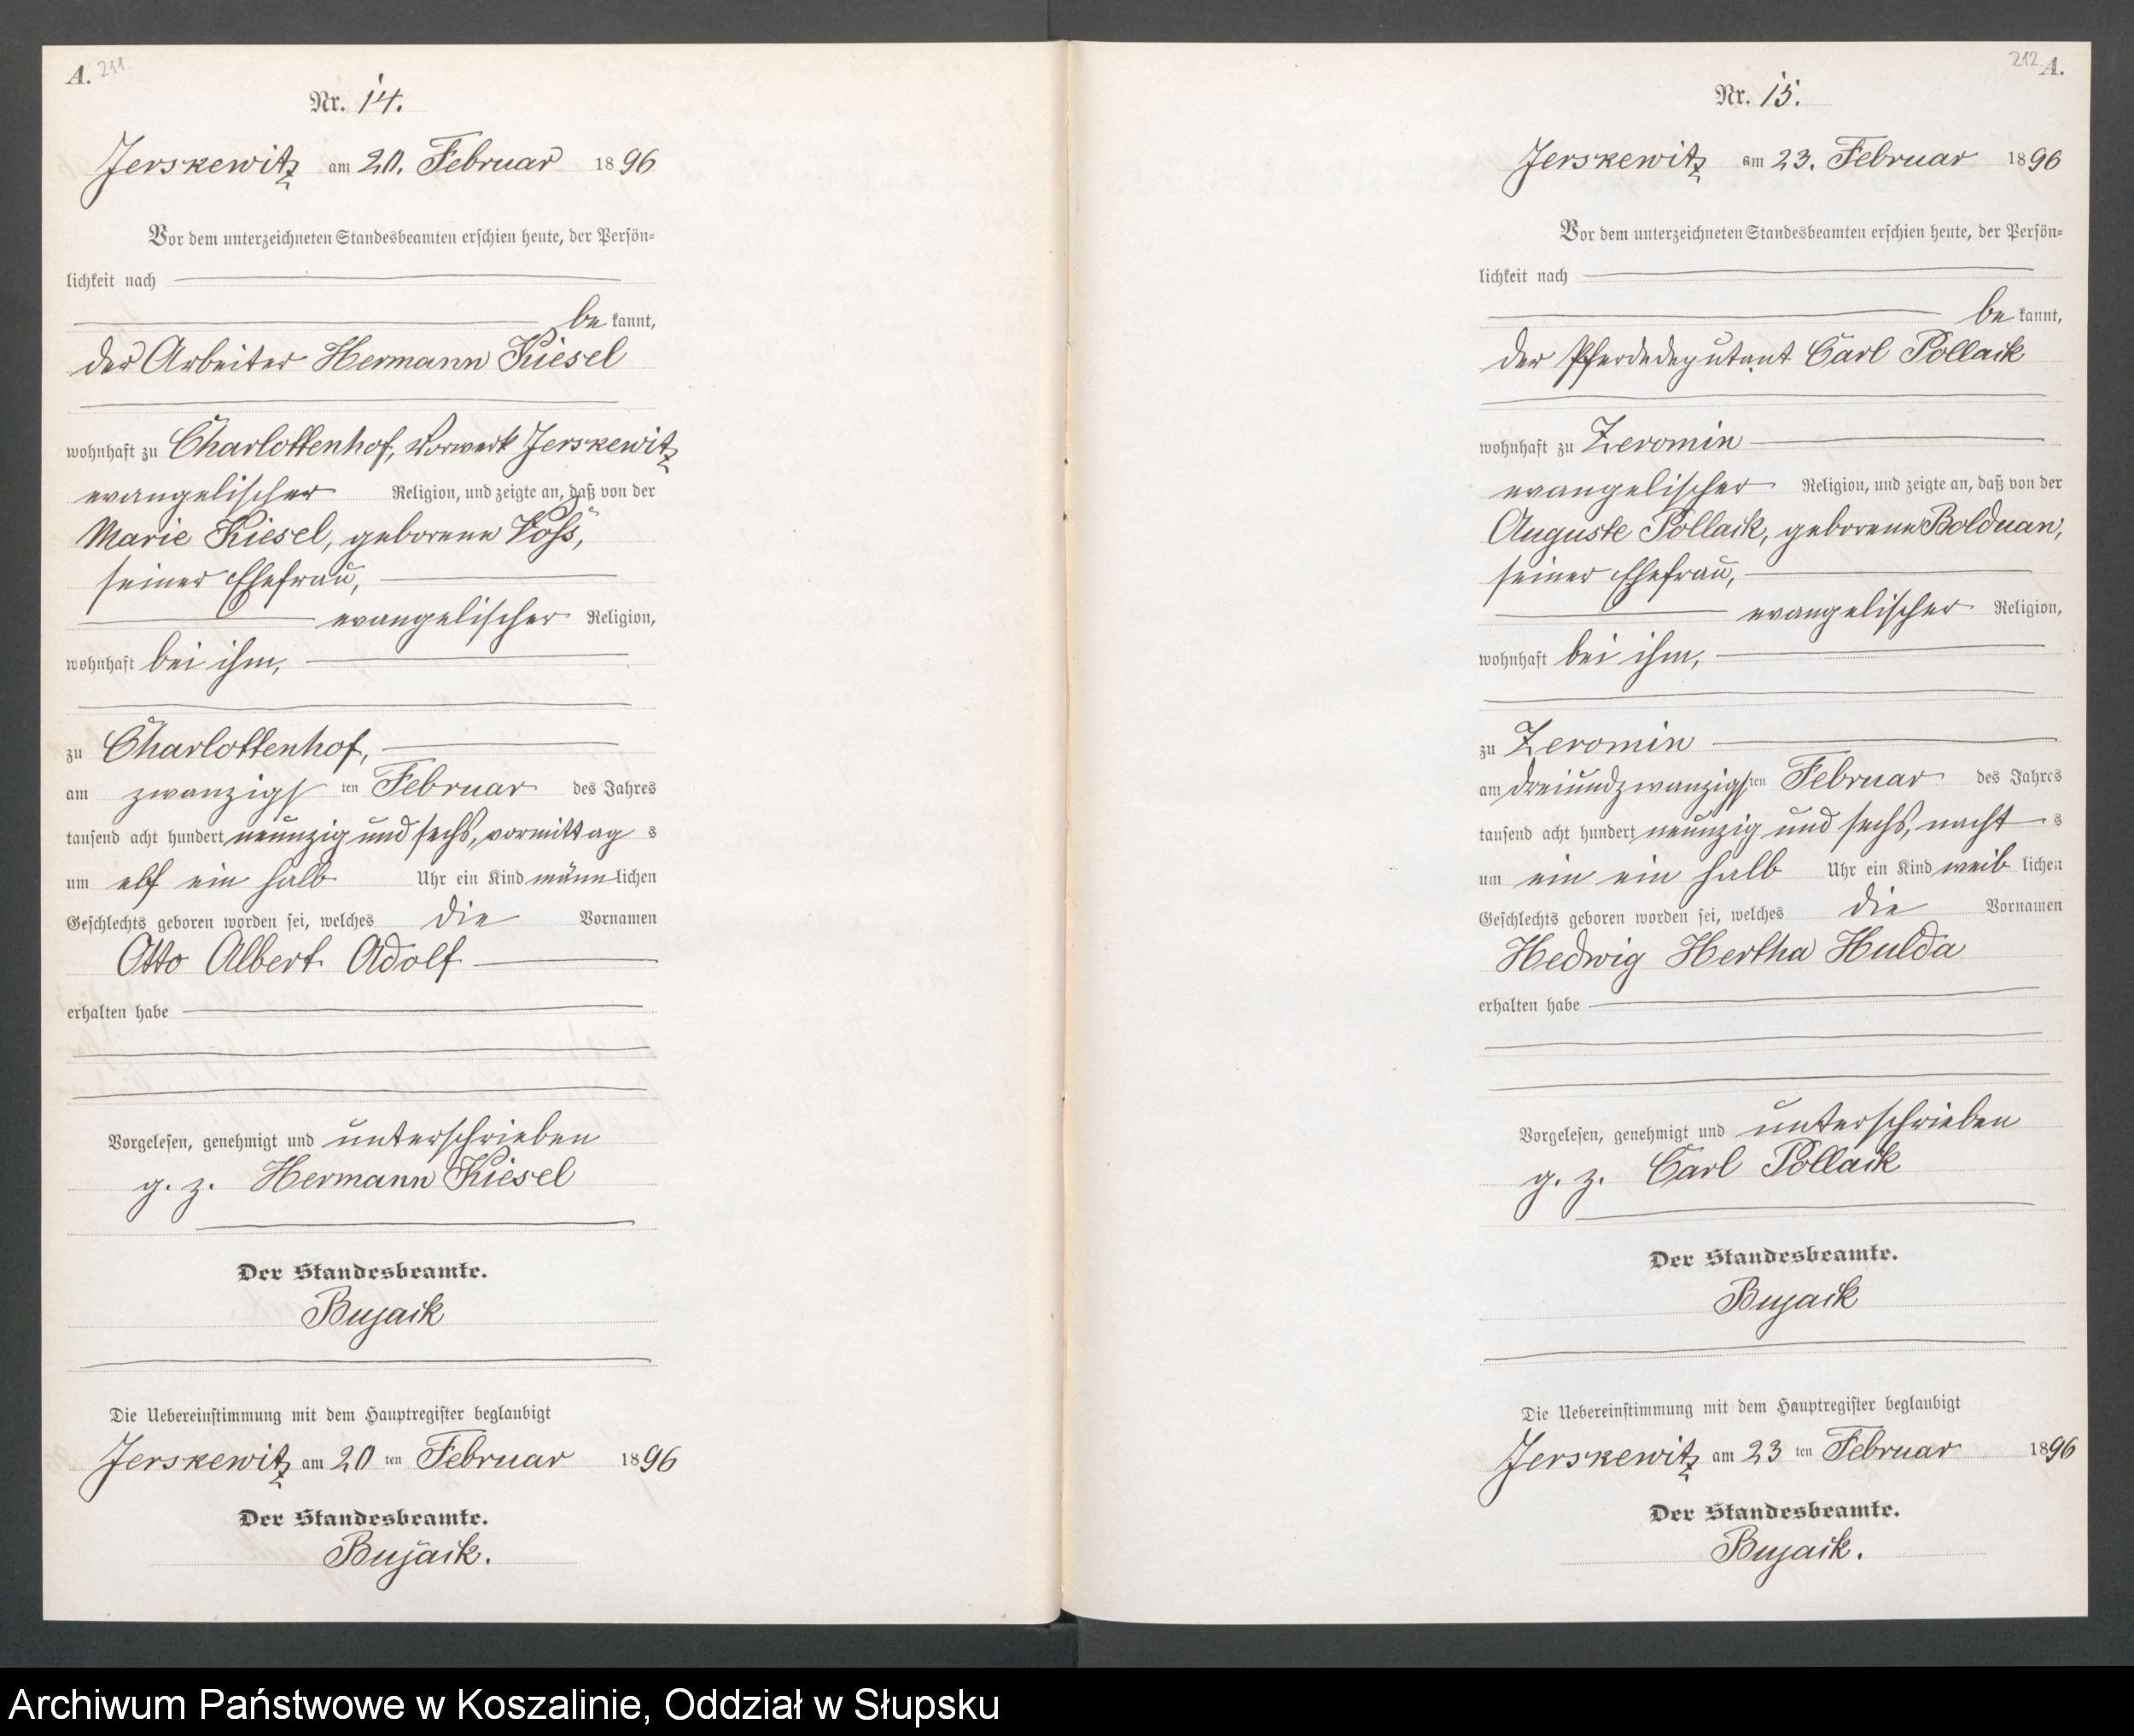 A. 211.
Nr. 14.
Jerskewitz am 20. Februar 1896
Vor dem unterzeichneten Standesbeamten erschien heute, der Persön-
lichkeit nach
be kannt,
der Arbeiter Hermann Kiesel
wohnhaft zu Charlottenhof, Vorwerk Jerskewitz
evangelischer Religion, und zeigte an, daß von der
Marie Kiesel, geborene Voß,
seiner Ehefrau,
evangelischer Religion,
wohnhaft bei ihm,
zu Charlottenhof,
am zwanzigsten Februar des Jahres
tausend acht hundert neunzig und sechs, vormittag s
um elf ein halb Uhr ein Kind männlichen
Geschlechts geboren worden sei, welches die Vornamen
Otto Albert Adolf
erhalten habe
Vorgelesen, genehmigt und unterschrieben
g. z. Hermann Kiesel
Der Standesbeamte.
Bujack
Die Uebereinstimmung mit dem Hauptregister beglaubigt
Jerskewitz am 20 ten Februar 1896
Der Standesbeamte.
Bujack.
212 A.
Nr. 15.
Jerskewitz am 23. Februar 1896
Vor dem unterzeichneten Standesbeamten erschien heute, der Persön-
lichkeit nach
be kannt,
der Pferdedeputant Carl Pollack
wohnhaft zu Zeromin
evangelischer Religion, und zeigte an, daß von der
Auguste Pollack, geborene Bolduan,
seiner Ehefrau,
evangelischer Religion,
wohnhaft bei ihm,
zu Zeromin
am dreiundzwanzigsten Februar des Jahres
tausend acht hundert neunzig und sechs, nacht s
um ein ein halb Uhr ein Kind weib lichen
Geschlechts geboren worden sei, welches die Vornamen
Hedwig Hertha Hulda
erhalten habe
Vorgelesen, genehmigt und unterschrieben
g. z. Carl Pollack
Der Standesbeamte.
Bujack
Die Uebereinstimmung mit dem Hauptregister beglaubigt
Jerskewitz am 23 ten Februar 1896
Der Standesbeamte.
Bujack.
Archiwum Państwowe w Koszalinie, Oddział w Słupsku